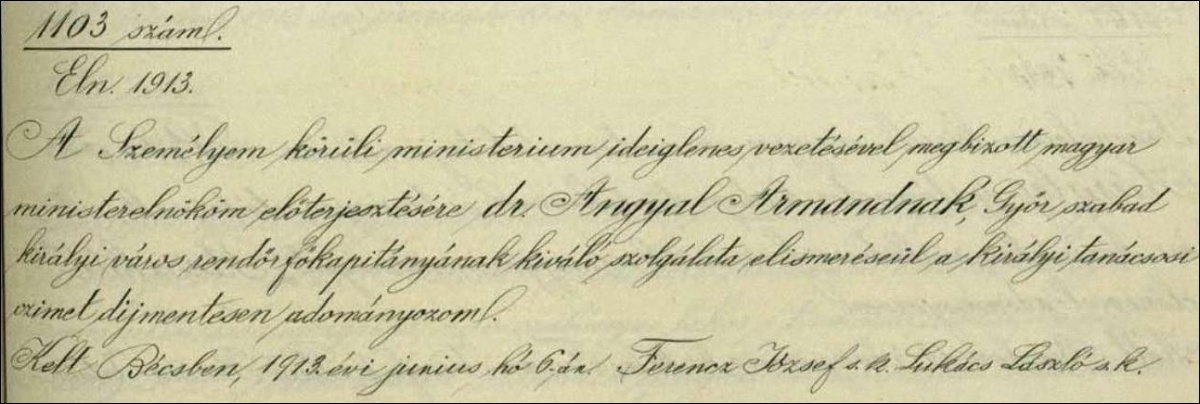 1103 száml.
Eln. 1913.
A Személyem körüli ministerium ideiglenes vezetésével megbizott magyar
ministerelnököm előterjesztésére dr. Angyal Armandnak, Győr szabad
királyi város rendőrfőkapitányának kiváló szolgálata elismeréseül a királyi tanácsosi
czimet dijmentesen adományozom.
Kelt Bécsben, 1913. évi junius hó 6-án. Ferencz József s. k. Lukács László s. k.